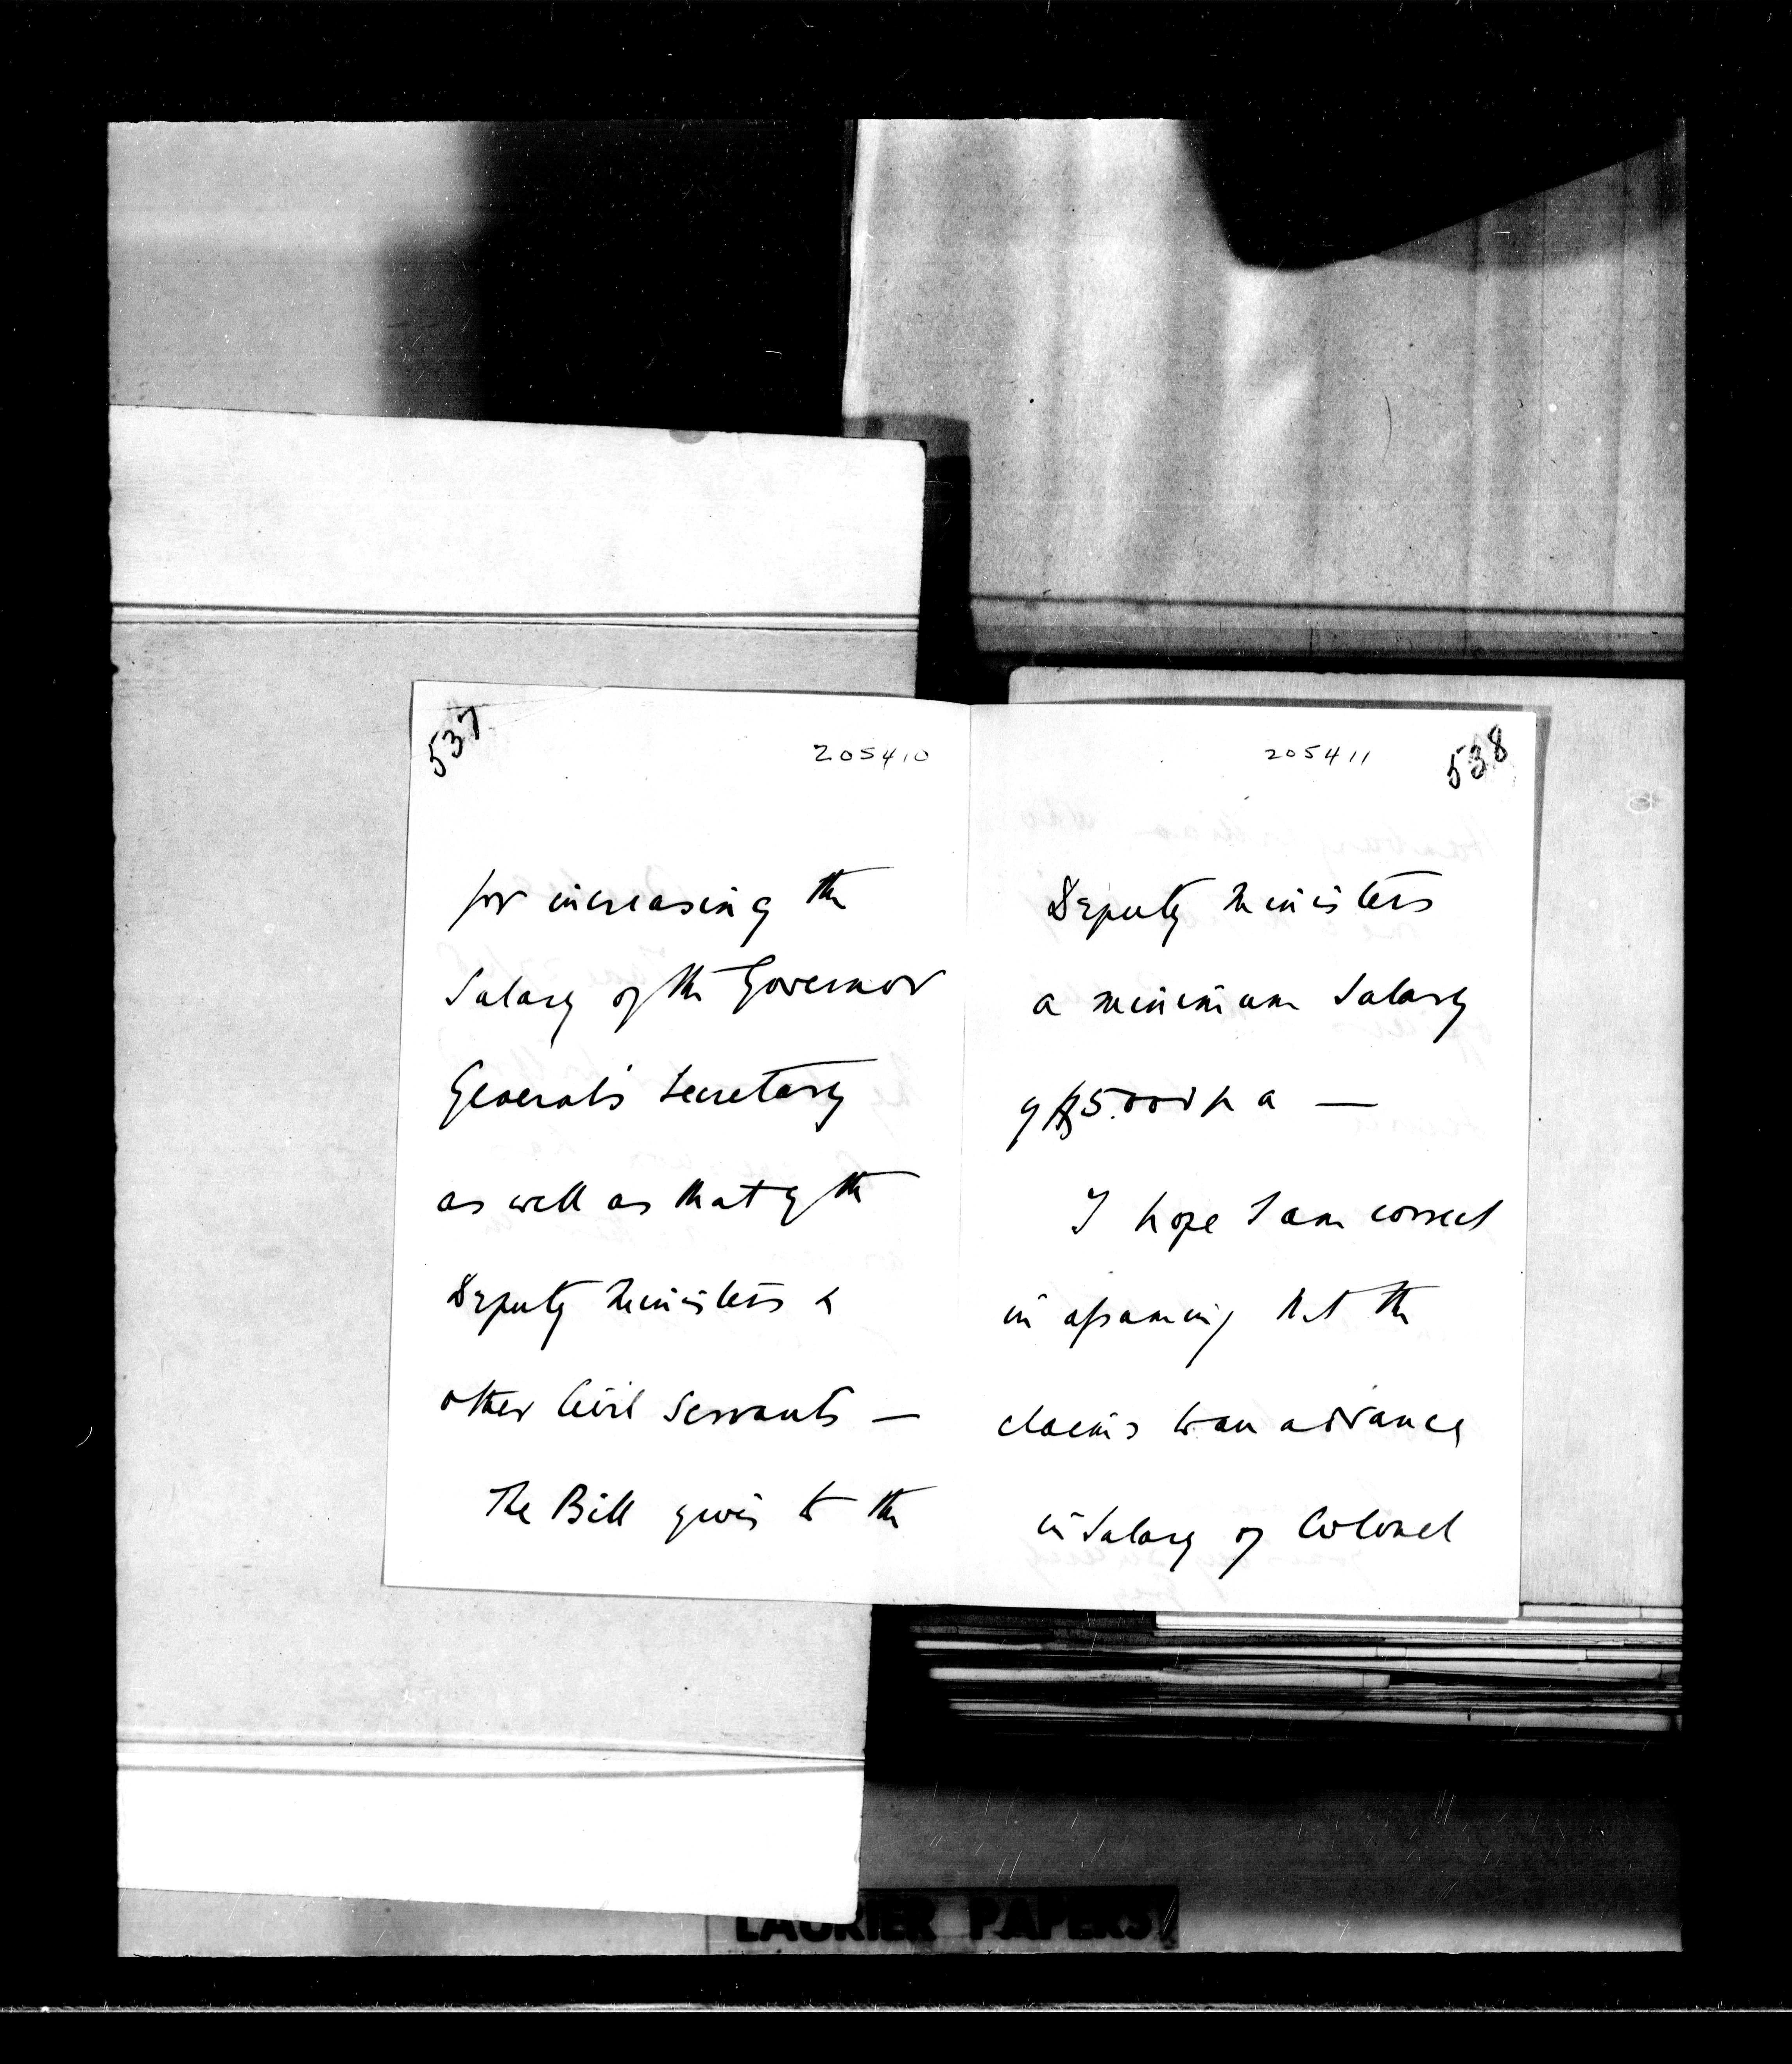 537
205410
for increasing the
Salary of the Governor
General's Secretary
as well as that of the
Deputy Ministers &
other Civil Servants —
The Bill gives to the
205411
538
Deputy Ministers
a minimum Salary
of $5.000 p a —
I hope I am correct
in assuming that the
claims to an advance
in Salary of Colonel
LAURIER PAPERS